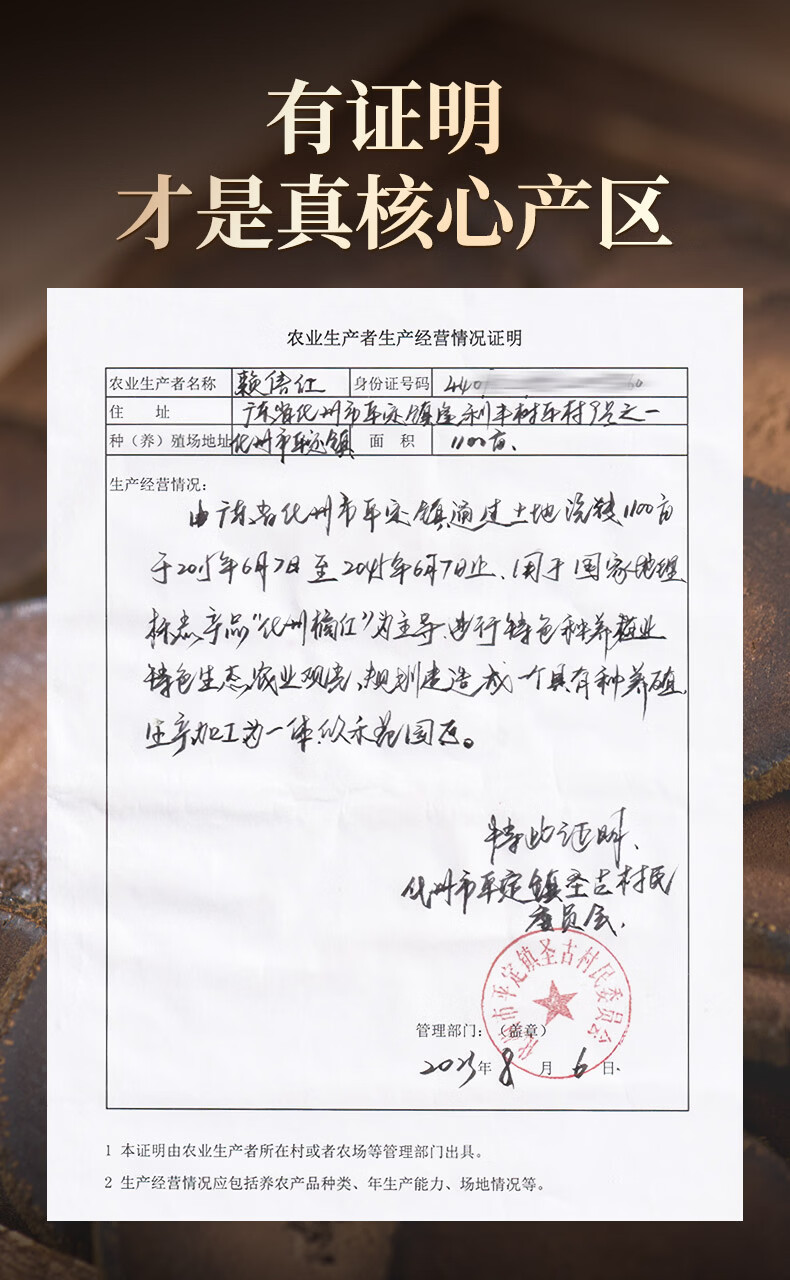 有证明
才是真核心产区
农业生产者生产经营情况证明
农业生产者名称 赖信仕 身份证号码 440
住 址 广东省化州市平定镇 村 号之一
种（养）殖场地址 化州市平定镇 面 积 1100亩、
生产经营情况：
由广东省化州市平定镇通过土地流转1100亩
于2015年6月7日至2045年6月7日止、用于国家地理
标志产品“化州橘红”为主导、进行特色种养植业
特色生态农业观光、规划建造成一个具有种养殖、
生产加工为一体的示范园区。
特此证明、
化州市平定镇圣古村民
委员会、
化州市平定镇圣古村民委员会
管理部门：（盖章）
2023年8月6日
1 本证明由农业生产者所在村或者农场等管理部门出具。
2 生产经营情况应包括养农产品种类、年生产能力、场地情况等。